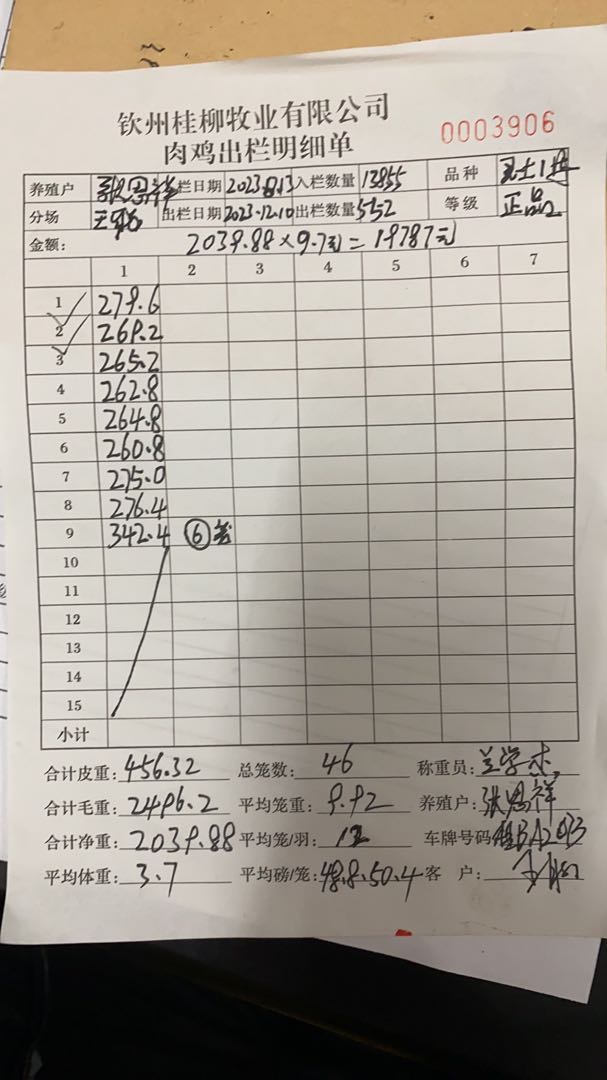 钦州桂柳牧业有限公司
肉鸡出栏明细单
0003906
养殖户 张思祥 入栏日期 2023.8.13 入栏数量 13855 品种
分场 出栏日期 2023.12.10 出栏数量 552 等级 正品
金额: 2039.88×9.7元=19787元
1 2 3 4 5 6 7
1 279.6
2 269.2
3 265.2
4 262.8
5 264.8
6 260.8
7 275.0
8 276.4
9 342.4 ⑥
10
11
12
13
14
15
小计
合计皮重: 456.32 总笼数: 46 称重员: 兰学杰
合计毛重: 2496.2 平均笼重: 9.92 养殖户: 张思祥
合计净重: 2039.88 平均笼/羽: 12 车牌号码
平均体重: 3.7 平均磅/笼: 48.8.50.4 客 户: